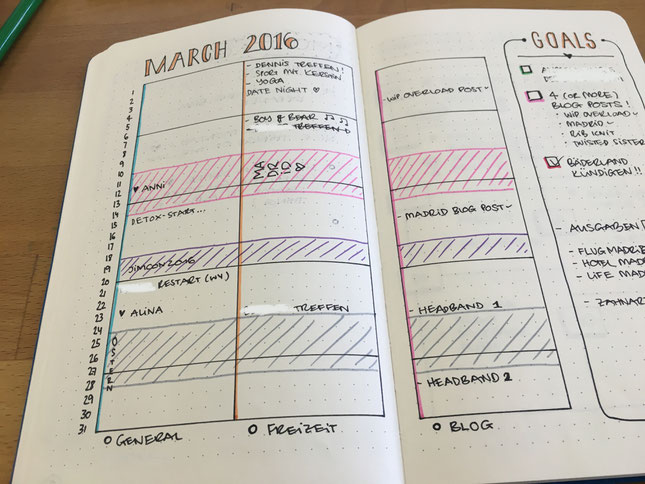 MARCH 2016
1
2
3
4
5
6
7
8
9
10
11
12
13
14
15
16
17
18
19
20
21
22
23
24
25
26
27
28
29
30
31
♥ ANNI
DETOX-START...
JIMCON 2016
RESTART (WW)
♥ ALINA
OSTERN
GENERAL
- DENNIS TREFFEN!
- SPORT MIT KERSEN
- YOGA
DATE NIGHT ♡
- BOY & BEAR ♫ ♫
- TREFFEN
MADRID
- TREFFEN
FREIZEIT
- WIP OVERLOAD POST ✓
- MADRID BLOG POST ✓
- HEADBAND 1
- HEADBAND 2
BLOG
GOALS
4 (OR MORE)
BLOG POSTS!
• WIP OVERLOAD ✓
• MADRID ✓
• RIB KNIT
• TWISTED SISTER
BÄDERLAND
KÜNDIGEN!!
- AUSGABEN
- FLUG MADRI
- HOTEL MAD
- LIFE MAD
- ZAHNAR